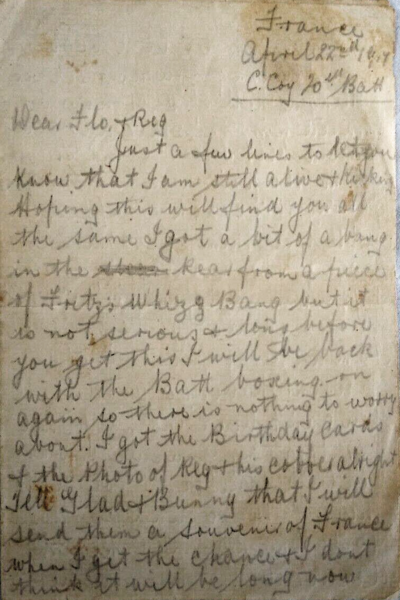 France
April 22nd 191
C. Coy 20th Batt
Dear Flo, & Reg
Just a few lines to let you
know that I am still alive & kicking
Hoping this will find you all
the same I got a bit of a bang
in the rear from a piece
of Fritz's Whizz Bang but it
is not serious & long before
you get this I will be back
with the Batt boxing on
again so there is nothing to worry
about. I got the Birthday Cards
& the Photo of Reg & his cobber alright
Tell Glad & Bunny that I will
send them a souvenir of France
when I get the chance & I dont
think it will be long now